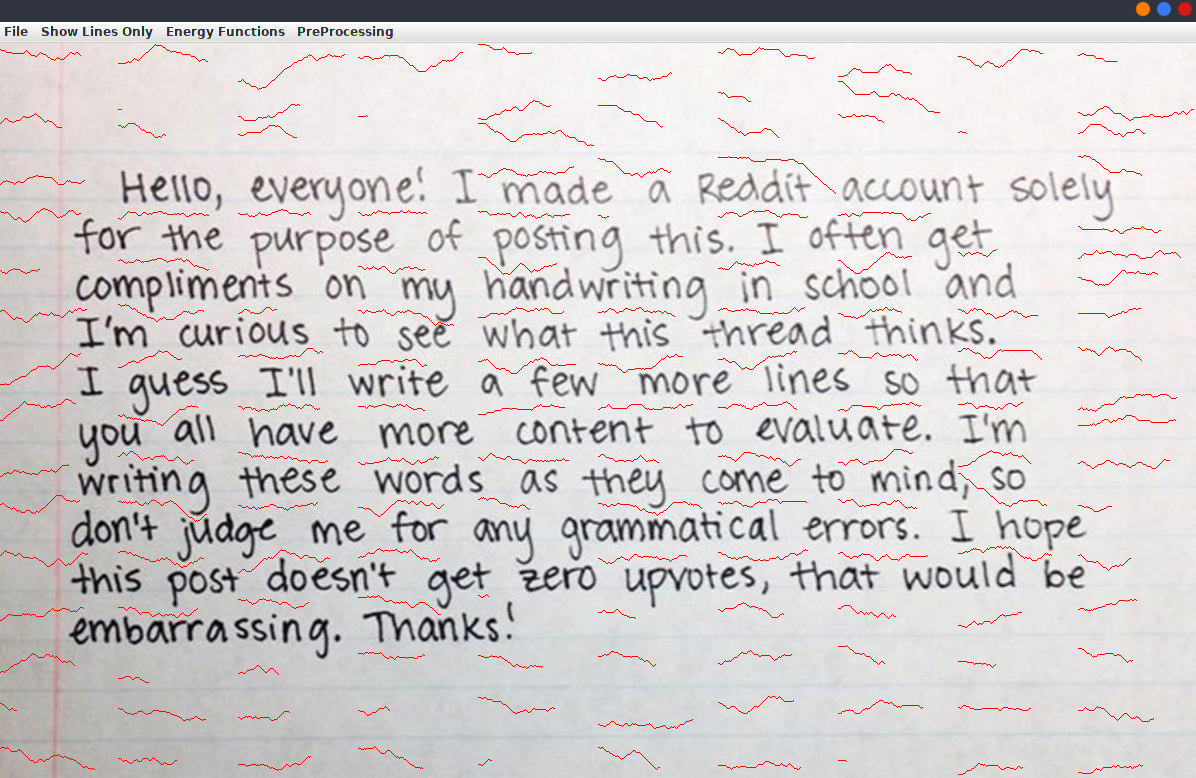 File Show Lines Only Energy Functions PreProcessing
Hello, everyone! I made a Reddit account solely
for the purpose of posting this. I often get
compliments on my handwriting in school and
I'm curious to see what this thread thinks.
I guess I'll write a few more lines so that
you all have more content to evaluate. I'm
writing these words as they come to mind, so
don't judge me for any grammatical errors. I hope
this post doesn't get zero upvotes, that would be
embarrassing. Thanks!